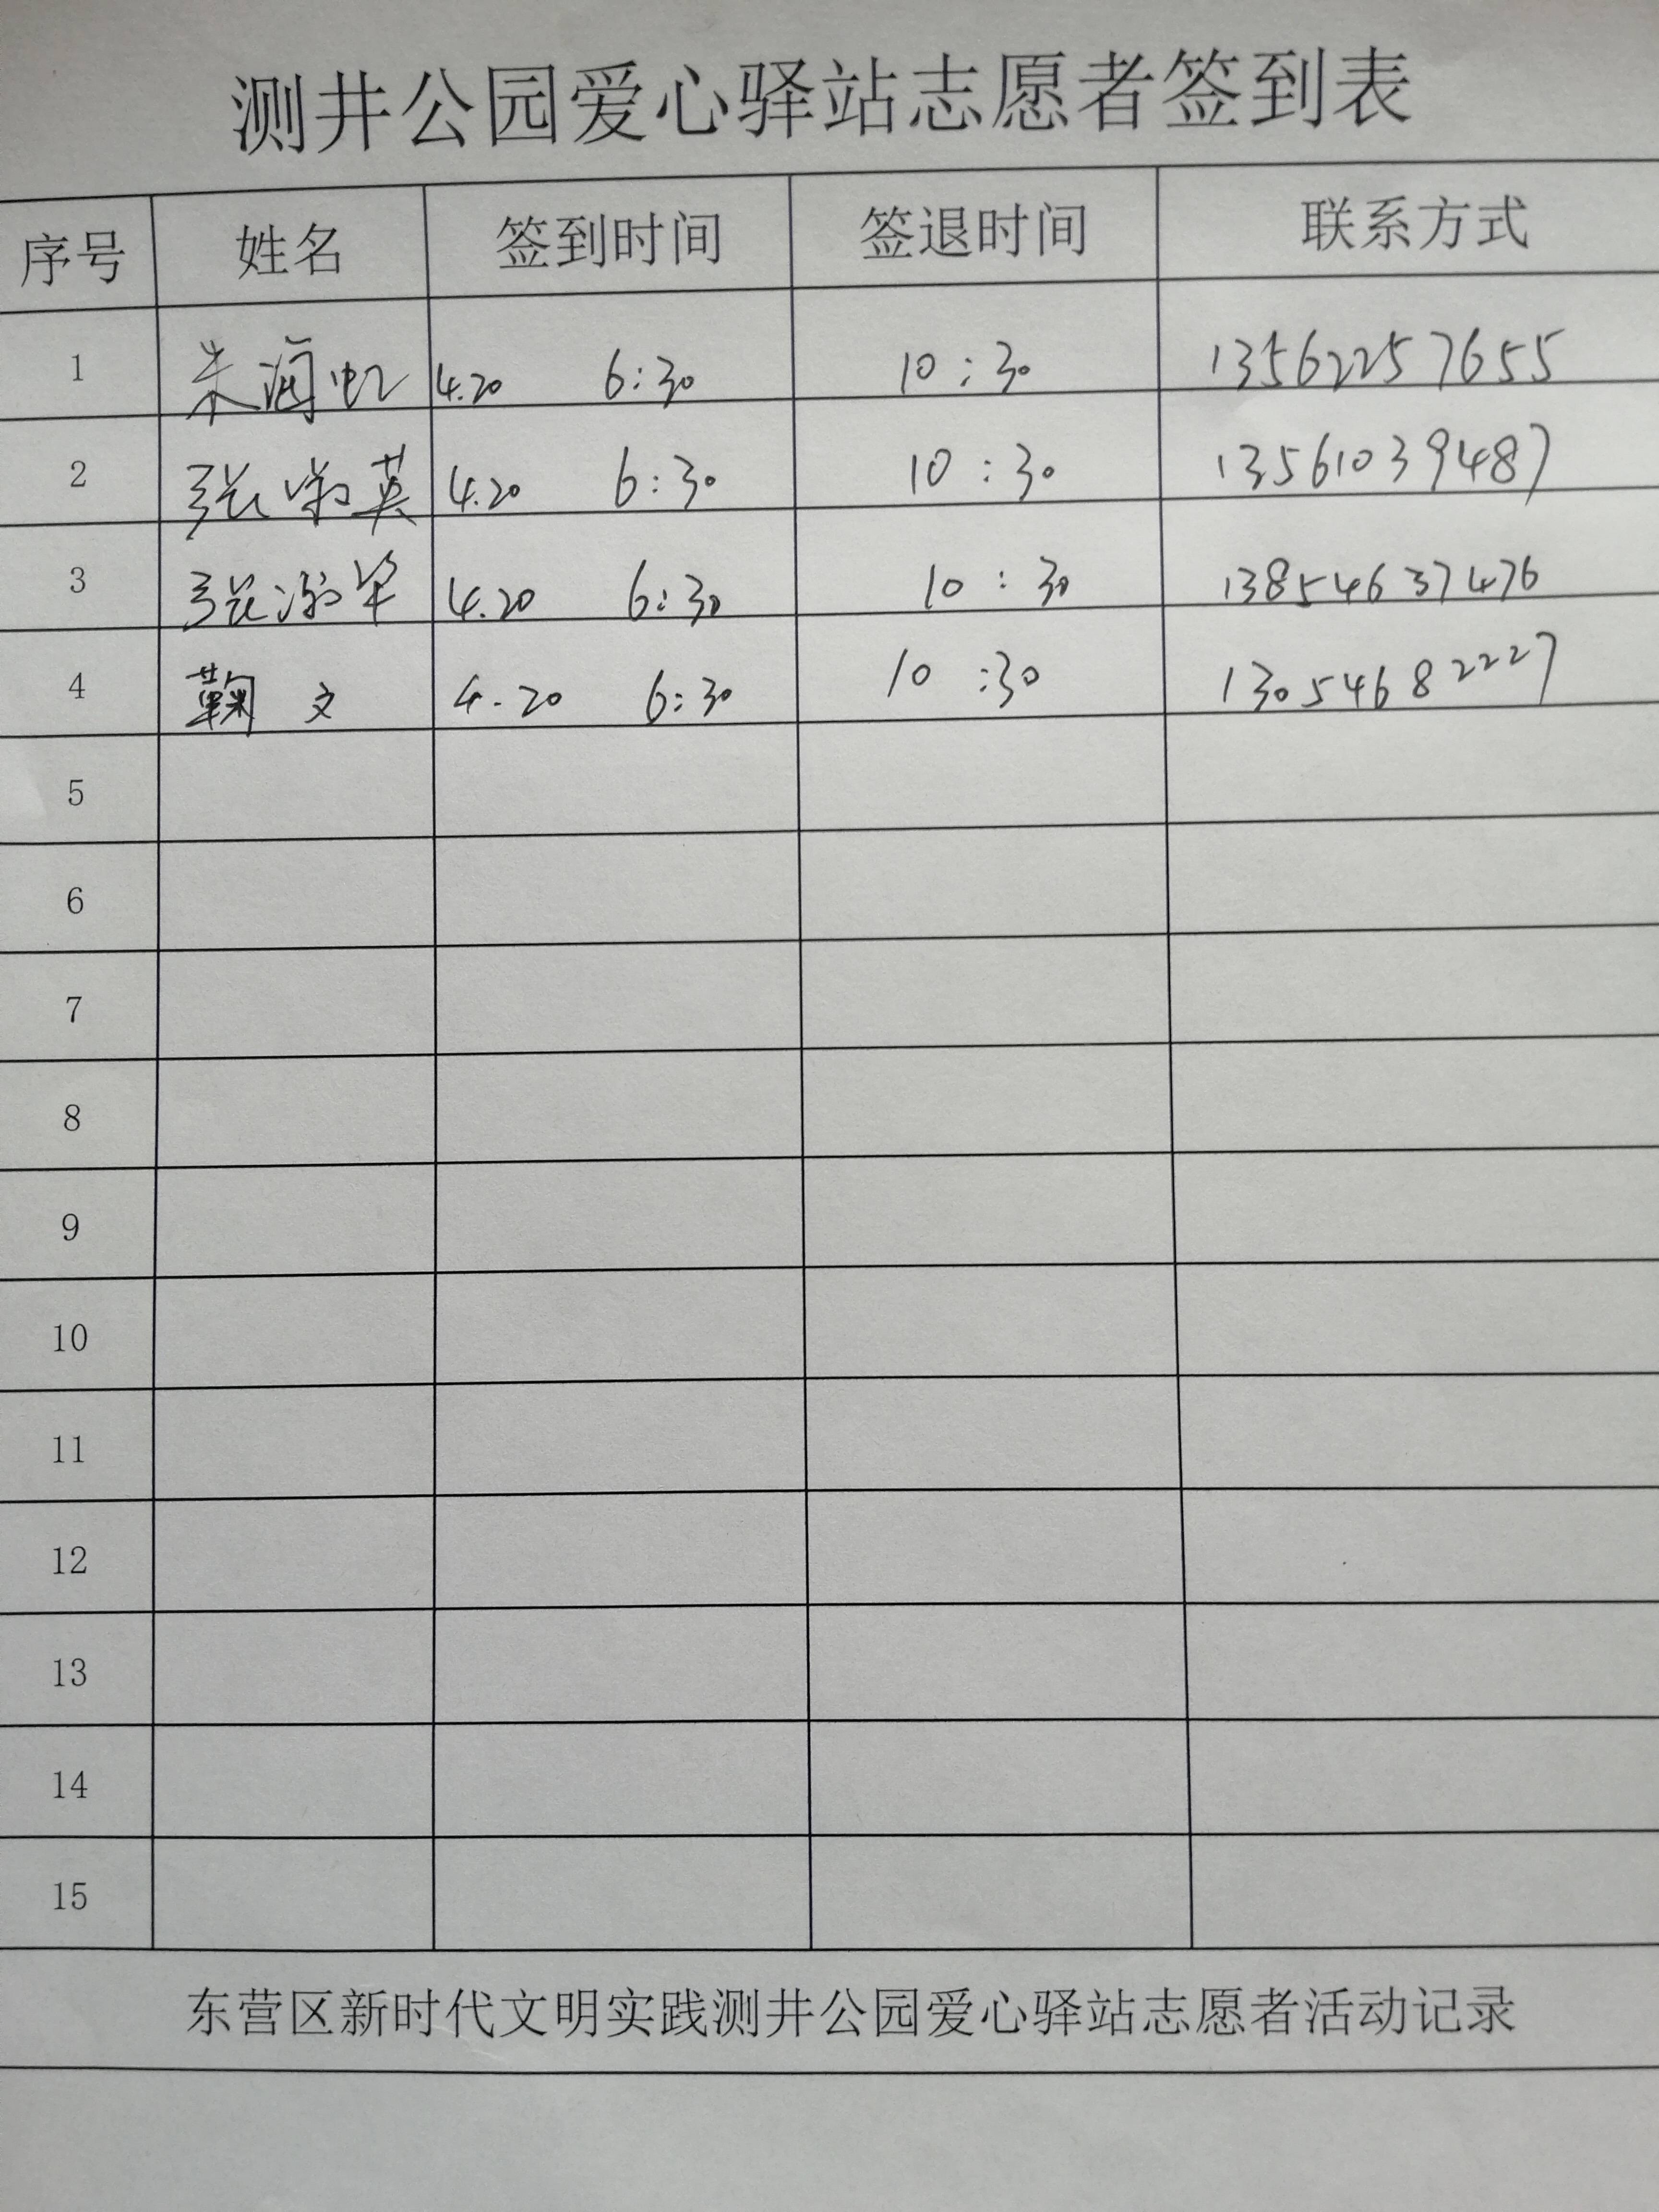 测井公园爱心驿站志愿者签到表
序号 姓名 签到时间 签退时间 联系方式
1 朱润虹 4.20 6:30 10:30 13562257655
2 张淑英 4.20 6:30 10:30 13561039487
3 张淑华 4.20 6:30 10:30 13854637476
4 鞠文 4.20 6:30 10:30 13054682227
5
6
7
8
9
10
11
12
13
14
15
东营区新时代文明实践测井公园爱心驿站志愿者活动记录